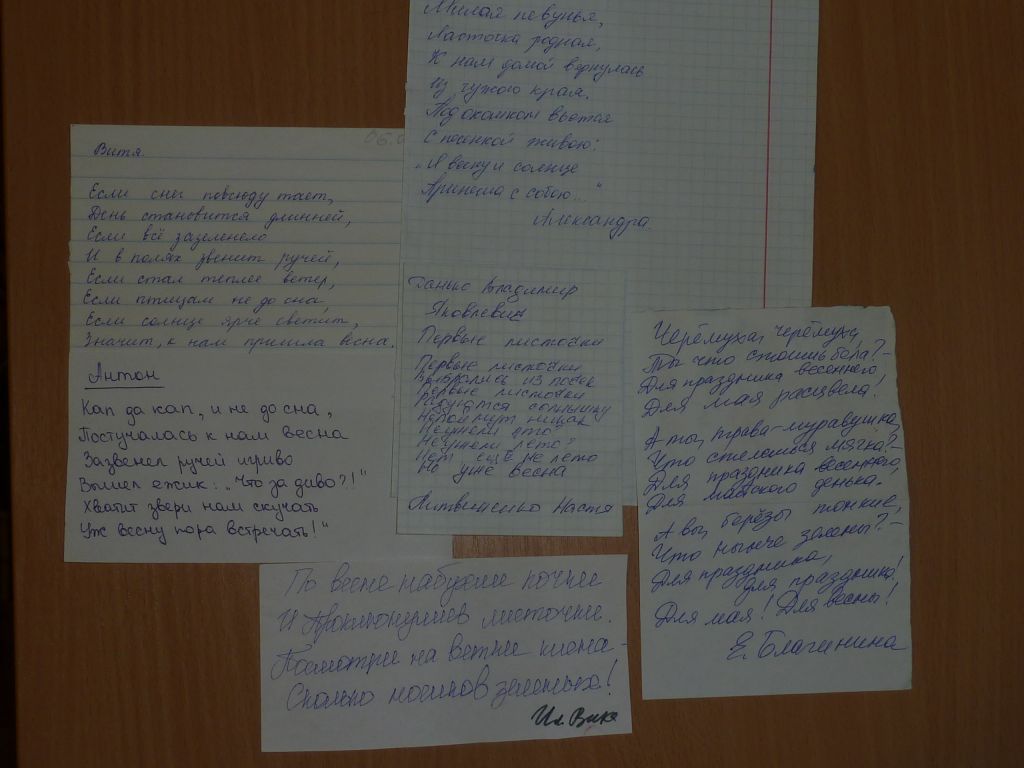 Милая певунья,
Ласточка родная,
К нам домой вернулась
Из чужого края.
Под окошком вьётся
С песенкой живою:
„Я весну и солнце
Принесла с собою..."
Александра
Витя.
Если снег повсюду тает,
День становится длинней,
Если всё зазеленело
И в полях звенит ручей,
Если стал теплее ветер,
Если птицам не до сна,
Если солнце ярче светит,
Значит, к нам пришла весна.
Антон
Кап да кап, и не до сна,
Постучалась к нам весна
Зазвенел ручей игриво
Вышел ежик: „Что за диво?!"
Хватит звери нам скучать
Уж весну пора встречать!"
Данько Владимир
Яковлевич
Первые листочки
Первые листочки
Выбрались из почек
Первые листочки
Радуются солнышку
Неужели это
Неужели лето?
Нет ещё не лето
Но уже весна
Литвиненко Настя
По весне набухли почки
И проклюнулись листочки.
Посмотри на ветки клена -
Сколько носиков зеленых!
Ил. Вика
Черёмуха, черёмуха,
Ты что стоишь бела? -
Для праздника весеннего
Для мая расцвела!
А ты, трава-муравушка,
Что стелешься мягка? -
Для праздника весеннего,
Для майского денька.
А вы, берёзы тонкие,
Что нынче зелены? -
Для праздника,
для праздника!
Для мая! Для весны!
Е. Благинина